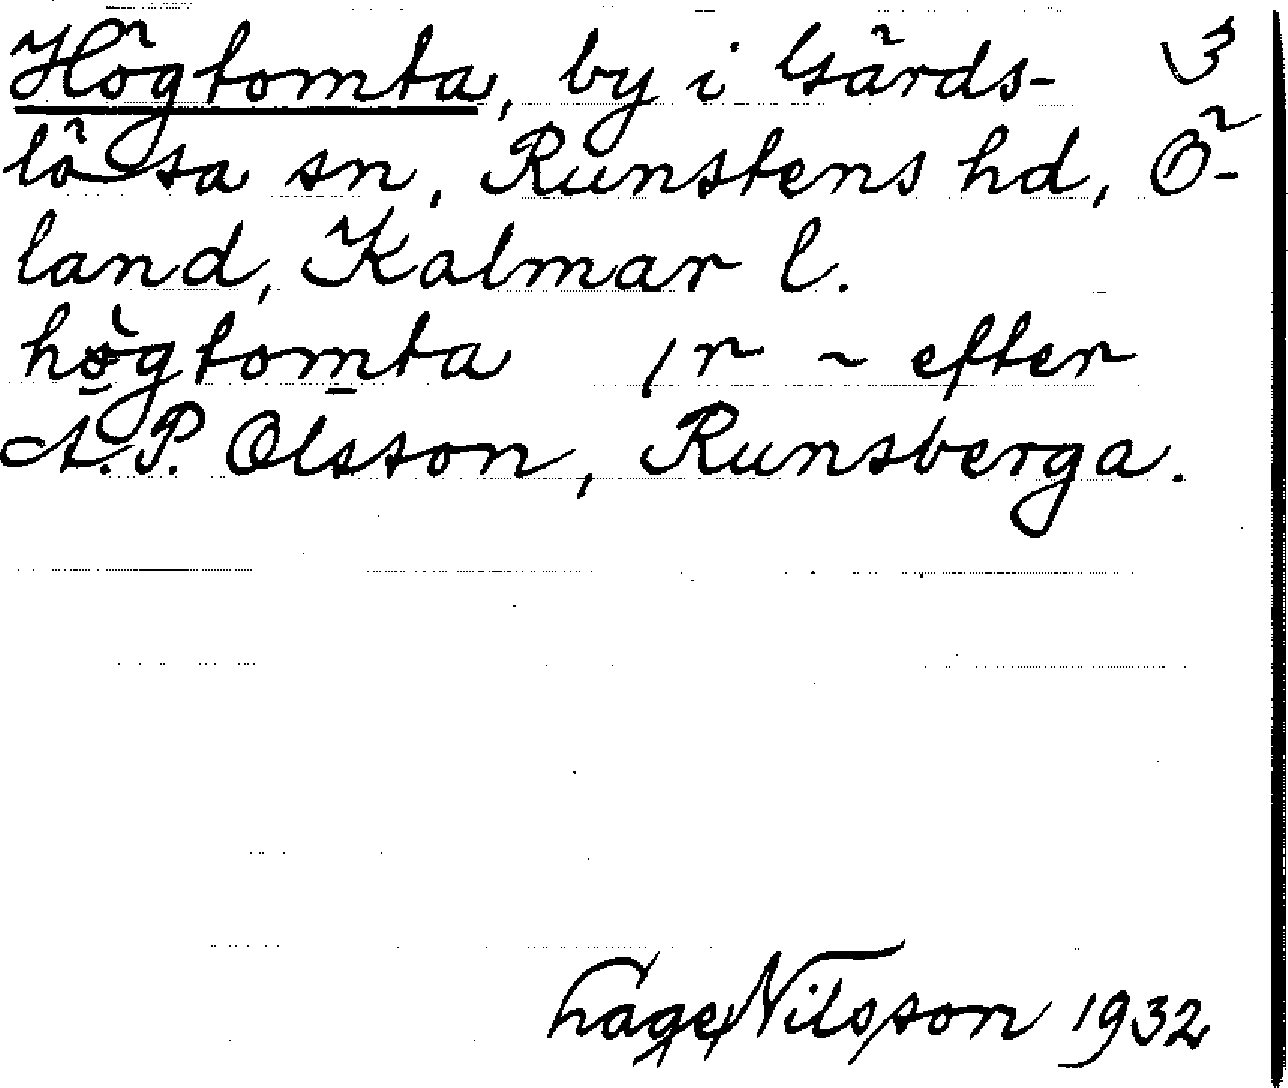 Högtomta, by i Gårds- 3
lösa sn, Runstens hd, Ö-
land, Kalmar l.
hògtomta /r ~ efter
A. P. Olsson, Runsberga.
Lage Nilsson 1932